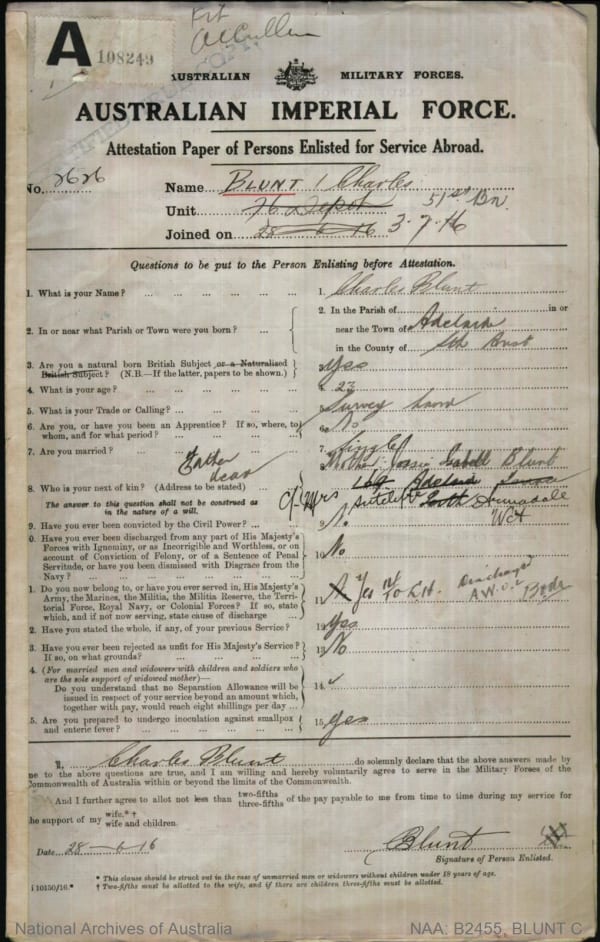 Fit
A
108249
AUSTRALIAN MILITARY FORCES.
AUSTRALIAN IMPERIAL FORCE.
Attestation Paper of Persons Enlisted for Service Abroad.
No. 2626
Name BLUNT Charles
Unit 76 Depot 51st Bn.
Joined on 28-6-16 3.7.16
Questions to be put to the Person Enlisting before Attestation.
1. What is your Name? 1. Charles Blunt
2. In or near what Parish or Town were you born? 2. In the Parish of in or
near the Town of Adelaide
in the County of Sth Aust
3. Are you a natural born British Subject or a Naturalised
British Subject? (N.B.—If the latter, papers to be shown.) 3. Yes
4. What is your age? 4. 23
5. What is your Trade or Calling? 5. Survey
6. Are you, or have you been an Apprentice? If so, where, to
whom, and for what period? 6. No
7. Are you married? 7. Single
Father
dead
8. Who is your next of kin? (Address to be stated) 8. Mother Isabell Blunt
Adelaide
The answer to this question shall not be construed as
in the nature of a will.
Armadale
WA
9. Have you ever been convicted by the Civil Power? 9. No
0. Have you ever been discharged from any part of His Majesty's
Forces with Ignominy, or as Incorrigible and Worthless, or on
account of Conviction of Felony, or of a Sentence of Penal
Servitude, or have you been Dismissed with Disgrace from the
Navy? 10. No
1. Do you now belong to, or have you ever served in, His Majesty's
Army, the Marines, the Militia, the Militia Reserve, the Terri-
torial Force, Royal Navy, or Colonial Forces? If so, state
which, and if not now serving, state cause of discharge 11. Yes L.H. Discharged
A.W.O.L
2. Have you stated the whole, if any, of your previous Service? 12. Yes
3. Have you ever been rejected as unfit for His Majesty's Service?
If so, on what grounds? 13. No
4. (For married men and widowers with children and soldiers who
are the sole support of widowed mother)—
Do you understand that no Separation Allowance will be
issued in respect of your service beyond an amount which,
together with pay, would reach eight shillings per day 14.
5. Are you prepared to undergo inoculation against smallpox
and enteric fever? 15. Yes
I, Charles Blunt do solemnly declare that the above answers made by
me to the above questions are true, and I am willing and hereby voluntarily agree to serve in the Military Forces of the
Commonwealth of Australia within or beyond the limits of the Commonwealth.
And I further agree to allot not less than two-fifths
three-fifths of the pay payable to me from time to time during my service for
the support of my wife.* †
wife and children.
Date 28-6-16
Blunt
Signature of Person Enlisted.
* This clause should be struck out in the case of unmarried men or widowers without children under 18 years of age.
i 10150/16.* † Two-fifths must be allotted to the wife, and if there are children three-fifths must be allotted.
National Archives of Australia NAA: B2455, BLUNT C